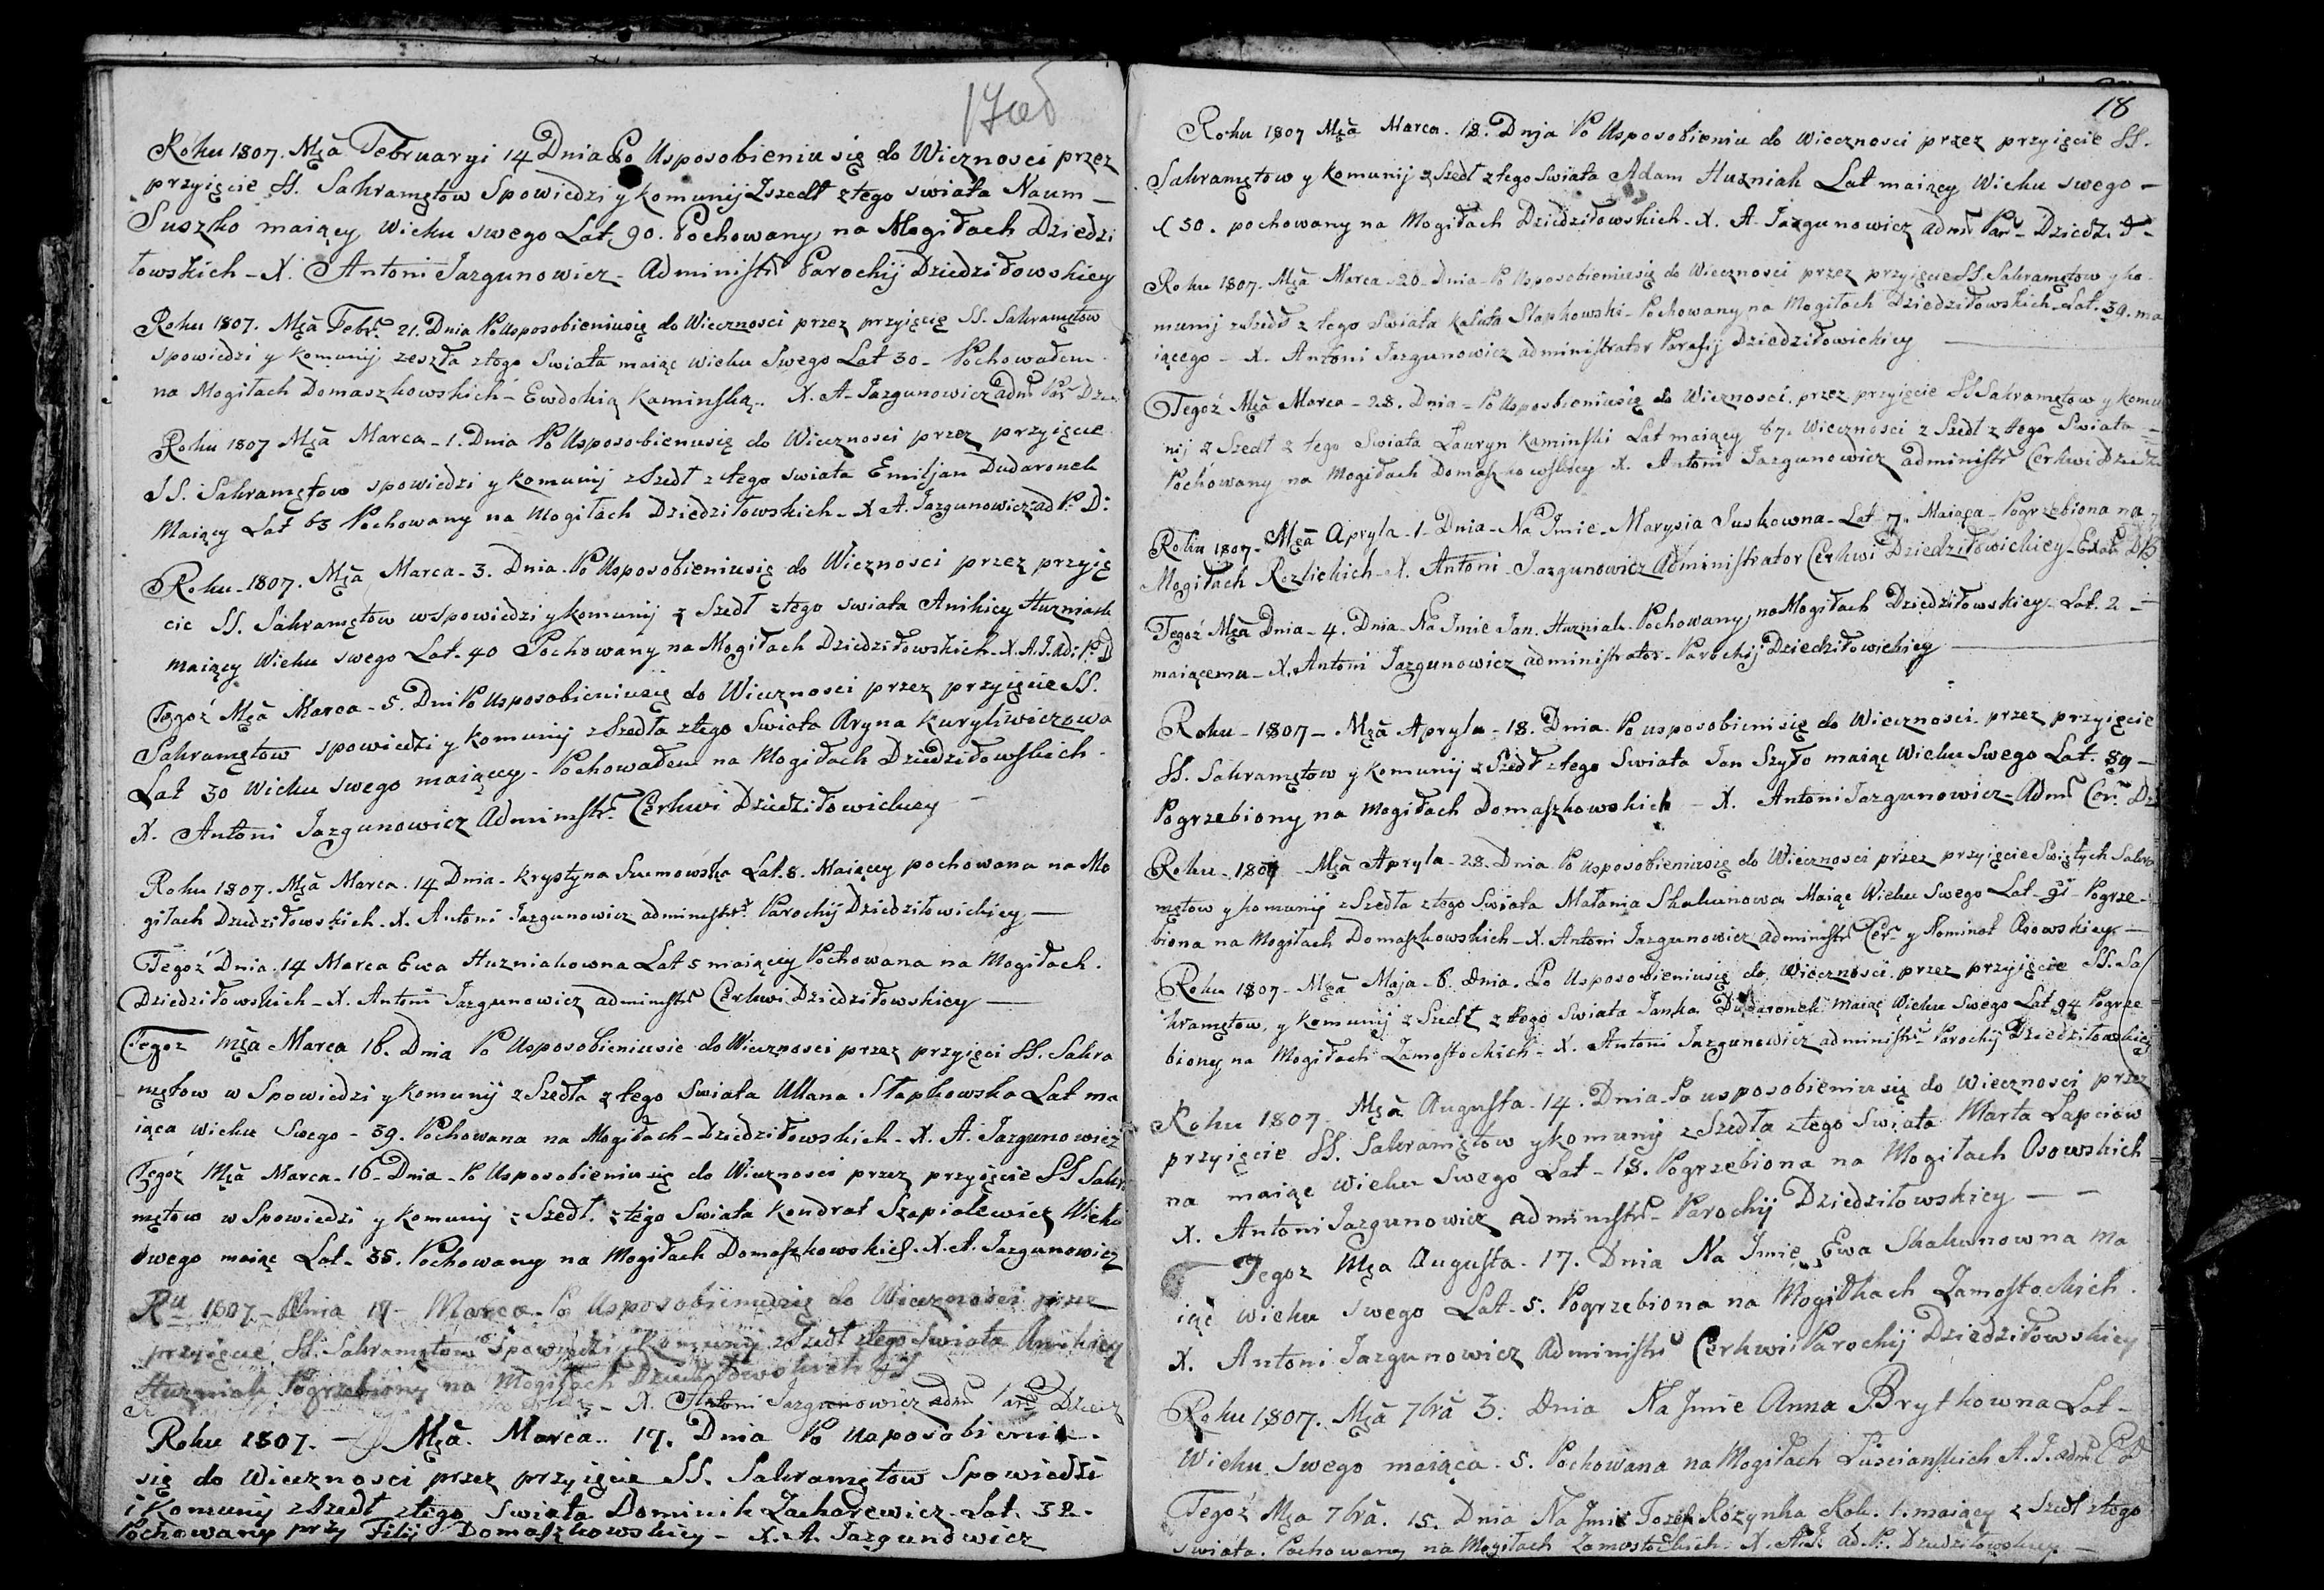 17 об
Roku 1807. Mca Februaryi 14 Dnia Po Usposobieniu się do Wicznosci przez
przyięcie SS. Sakramętow Spowiedzi y komunij Zszedł z tego swiata Naum –
Suszko maiący Wieku swego Lat 90. Pochowany na Mogiłach Dziedzi
łowskich – X. Antoni Jazgunowicz – Administr Parochij Dziedziłowskiey
Roku 1807. Mca Febr. 21. Dnia Po Usposobieniusię do Wiecznosci przez przyięcię SS. Sakramętow
spowiedzi y komunij zeszła z tego Swiata maiąc wieku Swego Lat 30 – Pochowałem
na Mogiłach Domaszkowskich – Ewdokią Kaminską. X. A. Jazgunowicz adm Par Dz
Roku 1807 Mca Marca – 1. Dnia Po Usposobieniusię do Wiecznosci przez przyięcie
SS. Sakramętow spowiedzi y komunij z Szedł z tego swiata Emiljan Dudaronek
Maiący Lat 63 Pochowany na Mogiłach Dziedziłowskich – X A. Jazgunowicz ad P. D:
Roku – 1807. Mca Marca – 3. Dnia – Po Usposobieniusię do Wieznosci przez przyię
cie SS. Sakramętow w spowiedzi y komunij z Szedł z tego swiata Anikiey Huzniak
maiący Wieku swego Lat – 40 Pochowany na Mogiłach Dziedziłowskich – X. A. J. Ad: P. D
Tegoż Mca Marca – 5. Dni Po Usposobieniusię do Wiecznosci przez przyięcie SS.
Sakramętow spowiedzi y komunij z Szedła z tego Swiata Aryna Kuryliwiczowa
Lat 30 wieku swego maiący – Pochowałem na Mogiłach Dziedziłowskich –
X. Antoni Jazgunowicz Administr. Cerkwi Dziedziłowickiey –
Roku 1807. Mca Marca. 14 Dnia. Krystyna Szumowska Lat. 8. Maiący pochowana na Mo
giłach Dziedziłowskich. X. Antoni Jazgunowicz administr. Parochij Dziedziłowickiey –
Tegoż Dnia. 14 Marca Ewa Huzniakowna Lat 5 maiący Pochowana na Mogiłach.
Dziedziłowskich – X. Antoni Jazgunowicz administr Cerkwi Dziedziłowskiey –
Tegoz Mca Marca 16. Dnia Po Usposobieniusie do Wiecznosci przez przyięci SS. Sakra
mętow w Spowiedzi y komunij z Szedła z tego Swiata Ullana Słapkowska Lat ma
iąca wieku Swego – 39. Pochowana na Mogiłach – Dziedziłowskich – X. A. Jazgunowicz
Tegoż Mca Marca – 16 – Dnia – Po Usposobieniusię do Wiecznosci przez przyięcie SS Sakr
mętow w Spowiedzi y komunij z Szedł. z tego Swiata Kondrat Szapialewicz Wieku
swego maiąc Lat – 35. Pochowany na Mogiłach Domaszkowskich. X. A. Jazgunowicz
Ru 1807 – Dnia 17 – Marca – Po Usposobieniusię do Wiecznosci przez
przyięcie SS. Sakramętow Spowiedzi y Komunij z Szedł z tego Swiata Anikiey
Huzniak Pogrzebiony na Mogiłach
X. Antoni Jazgunowicz adm Par Dziedz
Roku 1807. – Mca. Marca. 17. Dnia Po Usposobieniu.
się do Wiecznosci przez przyięcie SS. Sakramętow Spowiedzi
i Komunij z Szedł z tego Swiata Dominik Zacharewicz. Lat. 32.
Pochowany przy Filij Domaszkowskiey – X. A. Jazgunowicz
18
Roku 1807 Mca Marca. 18. Dnja Po Usposobieniu do Wiecznosci przez przyięcie SS.
Sakramętow y komunij z Szedł z tego Swiata Adam Huzniak Lat maiący Wieku swego –
50. pochowany na Mogiłach Dziedziłowskich – X. A. Jazgunowicz adm Par – Dziedz.
Roku 1807. Mca Marca – 20 – Dnia – Po Usposobieniusię do Wiecznosci przez przyięcie SS. Sakramętow y ko
munij z Szedł z tego Swiata Kaluta Słapkowski – Pochowany na Mogiłach Dziedziłowskich – Lat. 39. ma
iącego – X. Antoni Jazgunowicz administrator Parafij Dziedziłowickiey
Tegoż Mca Marca – 28. Dnia – Po Usposobieniusię do Wiecznosci przez przyięcie SS Sakramętow y komu
nij z Szedł z tego Swiata Lauryn Kaminski Lat maiący 67. Wiecznosci z Szedł z tego Swiata –
Pochowany na Mogiłach Domaszkowskiey X. Antoni Jazgunowicz administr Cerkwi Dziedz
Roku 1807 – Mca Apryla – 1. Dnia – Na Jmie – Marysia Suskowna – Lat – 7. Maiąca – Pogrzebiona na
Mogiłach Rezlickich – X. Antoni – Jazgunowicz Administrator Cerkwi Dziedziłowickiey –
Tegoż Mca Dnia – 4. Dnia – Na Jmie Jan. Huzniak – Pochowany na Mogiłach Dziedziłowskiey – Lat. 2 –
maiącemu – X. Antoni Jazgunowicz administrator – Parochij Dziedziłowickiey
Roku – 1807 – Mca Apryla – 18. Dnia – Po usposobienisię do Wiecznosci przez przyięcie
SS. Sakramętow y komunij z Szedł z tego Swiata Jan Szyło maiąc Wieku Swego Lat. 89 –
Pogrzebiony na Mogiłach Domaszkowskich – X. Antoni Jazgunowicz – Adm Cer. Dz
Roku – 1807 – Mca Apryla – 28. Dnia Po Usposobieniusię do Wiecznosci przez przyięcie Swiętych Sakra
mętow y komunij z Szedła z tego Swiata Małania Skakunowa Maiąc Wieku Swego Lat – 91 – Pogrze –
biona na Mogiłach Domaszkowskich – X. Antoni Jazgunowicz administr Cer – y Nominat Osowskiey –
Roku 1807 – Mca Maja – 6. dnia. Po Usposobieniusię do Wiecznosci przez przyięcie SS. Sa
kramętow, y komunij z Szedł z tego Swiata Janka Dudaronek maiąc Wieku Swego Lat 94 Pogrze
biony na Mogiłach Zamostockich – X. Antoni Jazgunowicz administr – Parochij Dziedziłowskiey
Roku 1807. Mca Augusta – 14. Dnia – Po usposobieniusię do Wiecznosci przez
przyięcie SS. Sakramętow y komunij z Szedła z tego Swiata Marta Łapciow
na maiąc wieku Swego Lat – 18. Pogrzebiona na Mogiłach Osowskich
X. Antoni Jazgunowicz administr – Parochij Dziedziłowskiey – –
Tegoz Mca Augusta – 17. Dnia Na Jmie Ewa Skakunowna Ma
iąc wieku swego Lat – 5. Pogrzebiona na Mogiłkach Zamostockich.
X. Antoni Jazgunowicz Administr Cerkwi Parochij Dziedziłowskiey
Roku 1807. Mca 7bra 3: Dnia Na Jmie Anna Brytkowna Lat –
Wieku Swego maiąca. 5. Pochowana na Mogiłach Luscianskich A. J. adm
Tegoż Mca 7bra. 15. Dnia Na Jmie Jozef Rozynka Rok. 1. maiący z Szedł z tego
swiata. Pochowany na Mogiłach Zamostockich – X. A. J. ad. P. Dziedziłowskiey –